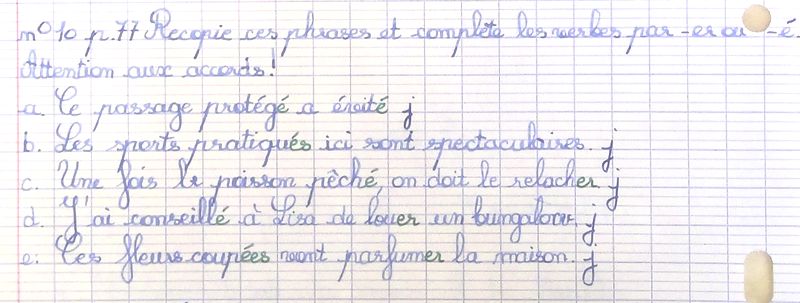 n° 10 p.77 Recopie ces phrases et complète les verbes par -er ou -é.
Attention aux accords!
a. Ce passage protégé a évité j
b. Les sports pratiqués ici sont spectaculaires. j
c. Une fois le poisson pêché, on doit le relacher. j
d. J'ai conseillé à Lisa de louer un bungalow. j
e. Ces fleurs coupées vont parfumer la maison. j